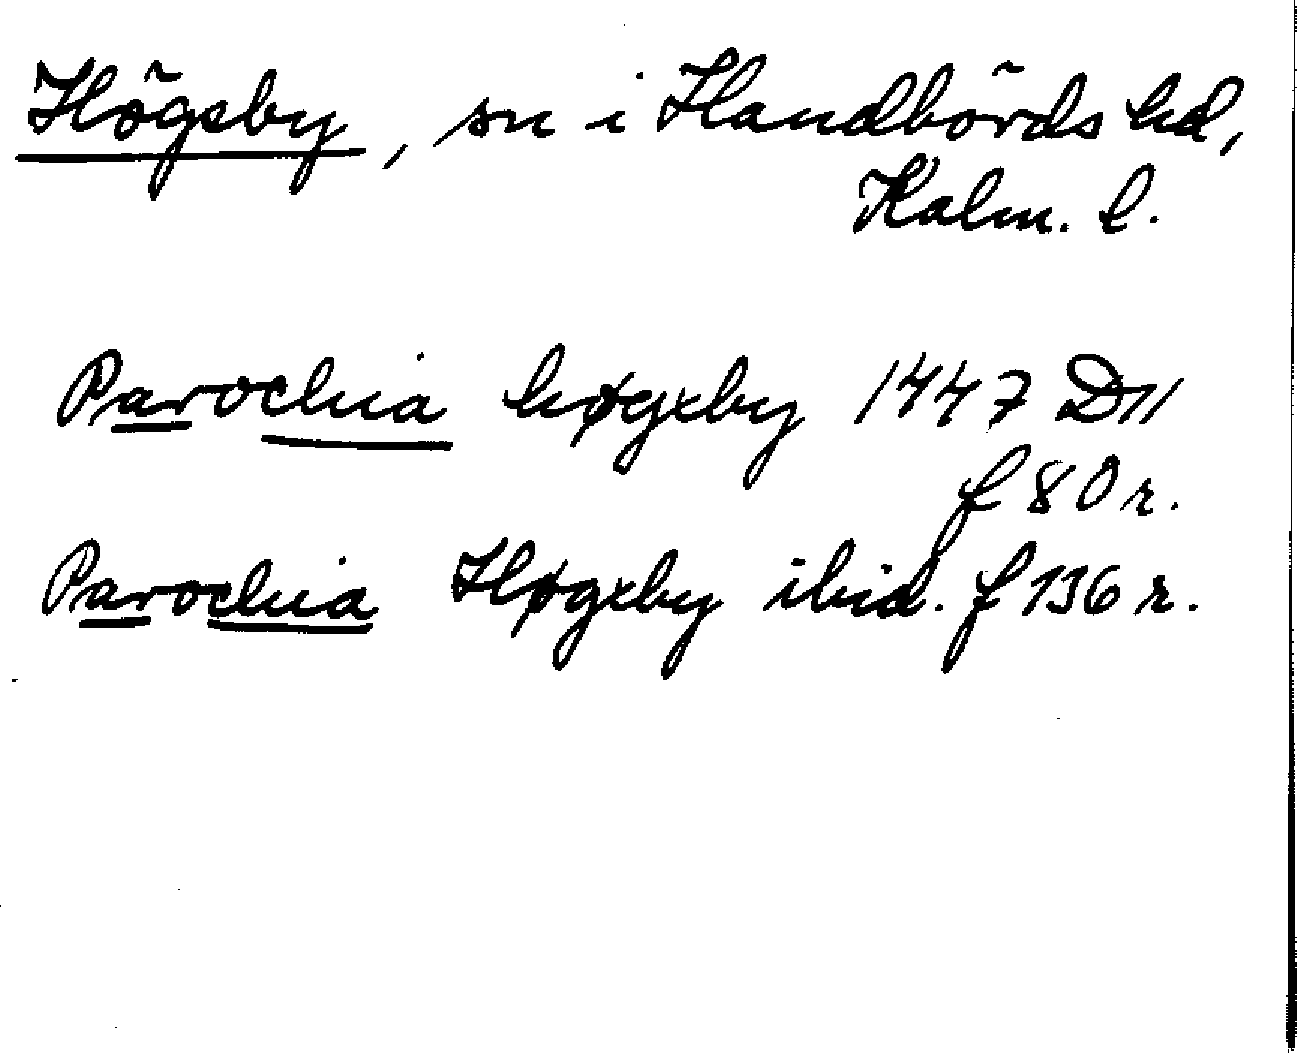 Högsby, sn i Handbörds hd,
Kalm. l.
Parochia høgxby 1447 D11
f 80 r.
Parochia Høgxby ibid. f 136 r.